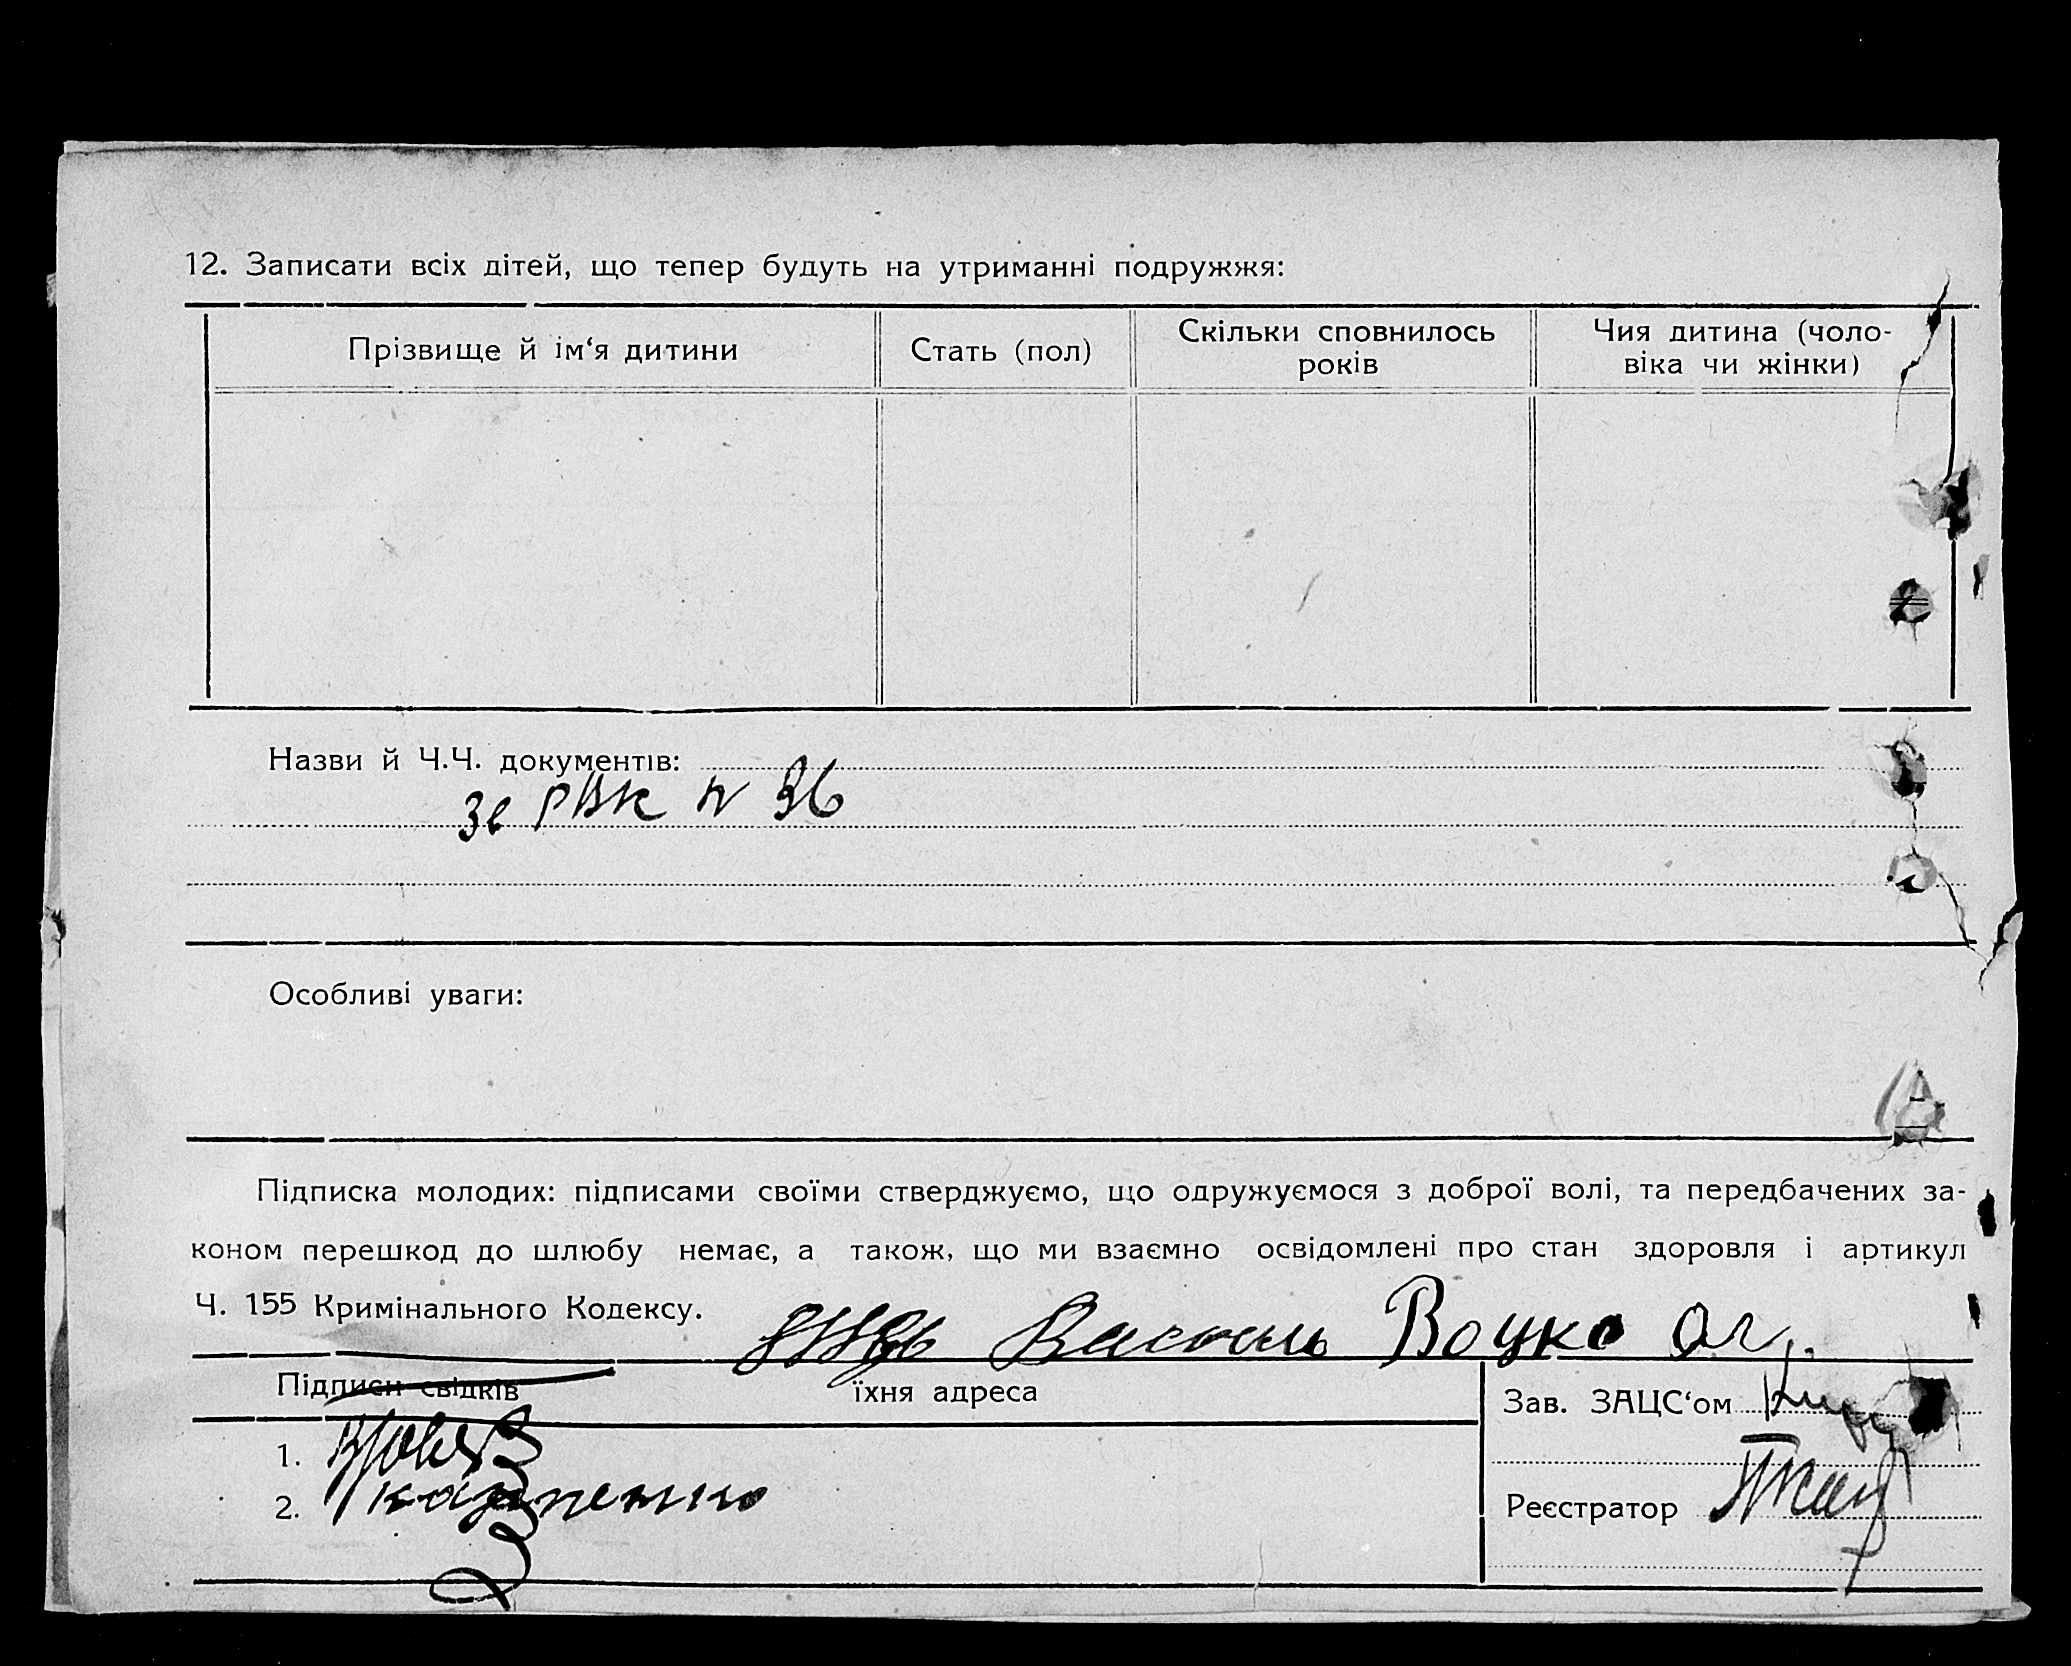 12. Записати всіх дітей, що тепер будуть на утриманні подружжя:
Прізвище й ім‘я дитини
Стать (пол)
Скільки сповнилось
років
Чия дитина (чоло-
віка чи жінки)
Назви й Ч.Ч. документів:
РВК N 36
Особливі уваги:
Підписка молодих: підписами своїми стверджуємо, що одружуємося з доброї волі, та передбачених за-
коном перешкод до шлюбу немає, а також, що ми взаємно освідомлені про стан здоровля і артикул
Ч. 155 Кримінального Кодексу.
Василь Воцко Ол.
Підписи свідків
їхня адреса
Зав. ЗАЦС‘ом
1.
2. Карпенко
Реєстратор